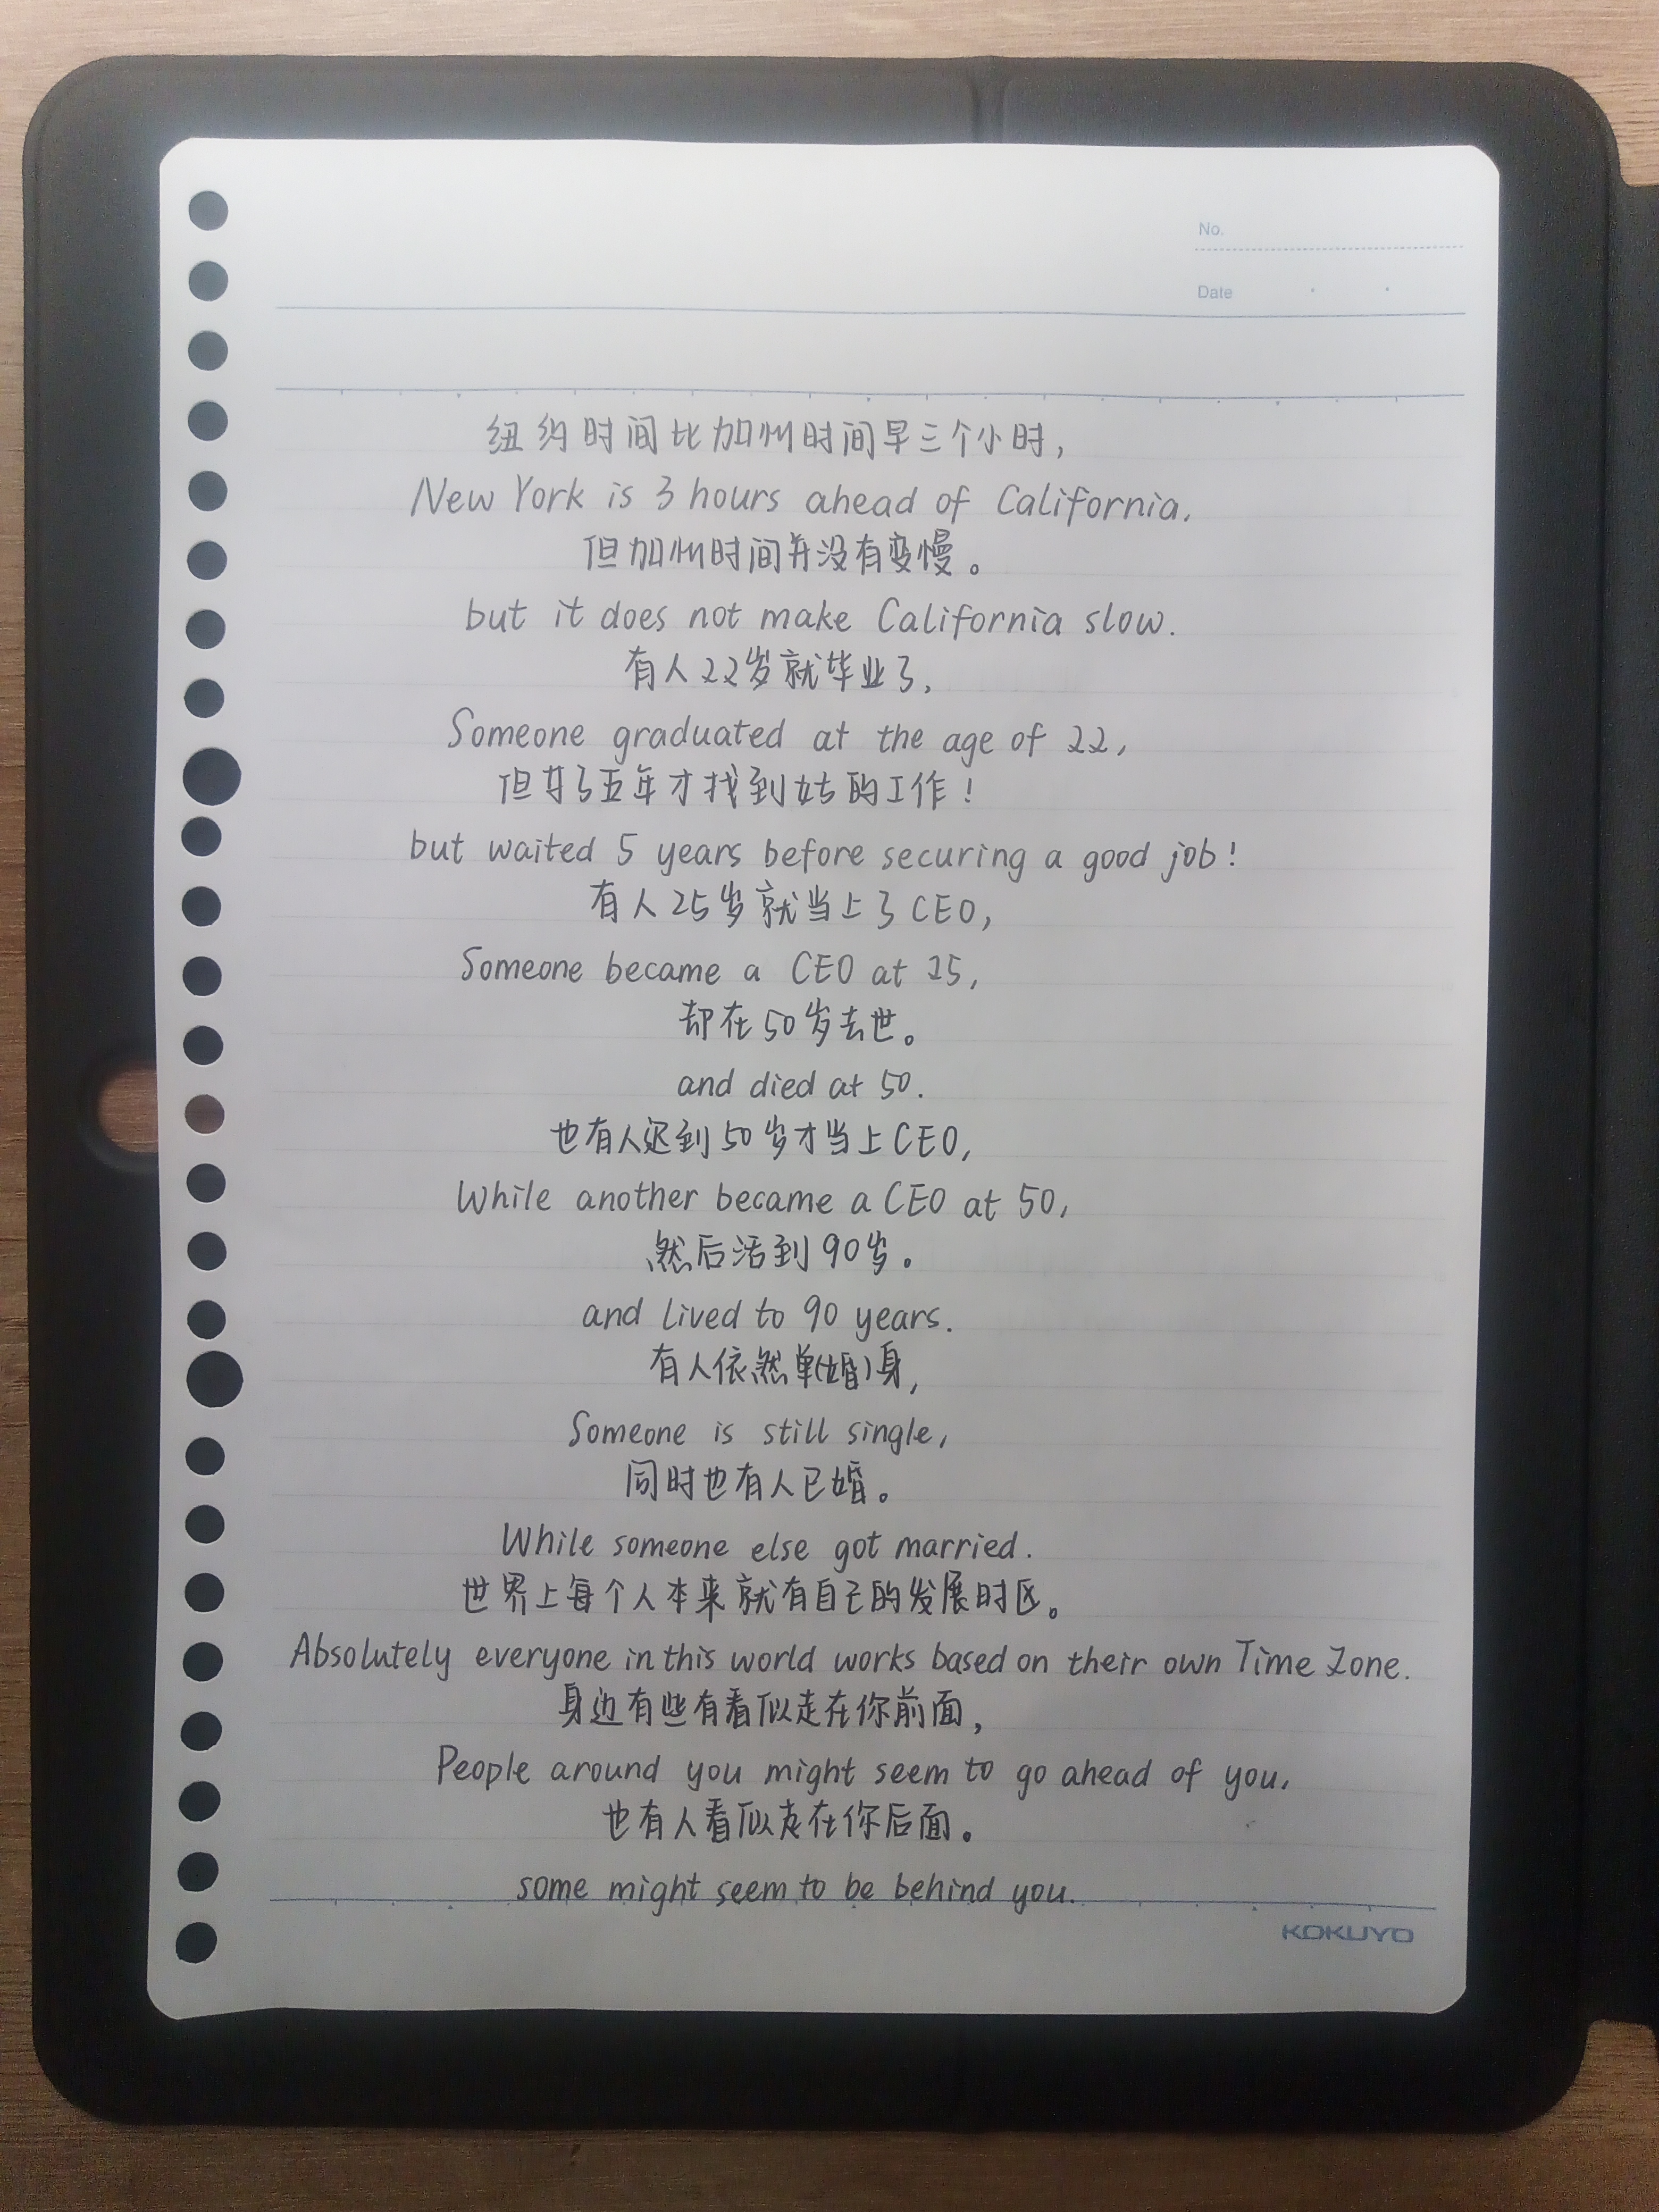 No.
Date
纽约时间比加州时间早三个小时,
New York is 3 hours ahead of California.
但加州时间并没有变慢。
but it does not make California slow.
有人22岁就毕业了,
Someone graduated at the age of 22,
但等了五年才找到好的工作!
but waited 5 years before securing a good job!
有人25岁就当上了CEO,
Someone became a CEO at 25,
却在50岁去世。
and died at 50.
也有人迟到50岁才当上CEO,
While another became a CEO at 50,
然后活到90岁。
and lived to 90 years.
有人依然单(婚)身,
Someone is still single,
同时也有人已婚。
While someone else got married.
世界上每个人本来就有自己的发展时区。
Absolutely everyone in this world works based on their own Time Zone.
身边有些有看似走在你前面,
People around you might seem to go ahead of you,
也有人看似走在你后面。
some might seem to be behind you.
KOKUYO